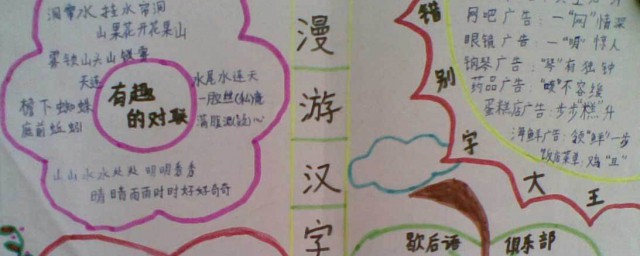 洞帘水挂水帘洞
山果花开花果山
雾锁山头山锁雾
天连
水尾水连天
有趣
的对联
檐下蜘蛛
一腔丝(私)意
庭前蚯蚓
山山水水处处明明秀秀
晴晴雨雨时时好好奇奇
漫
游
汉
字
错
别
字
大
王
网吧广告:一"网"情深
眼镜广告:一"明"惊人
钢琴广告:"琴"有独钟
药品广告:"咳"不容缓
蛋糕店广告:步步"糕"升
海鲜广告:领"鲜"一步
饭店菜单:鸡"旦"
歇后语
俱乐部